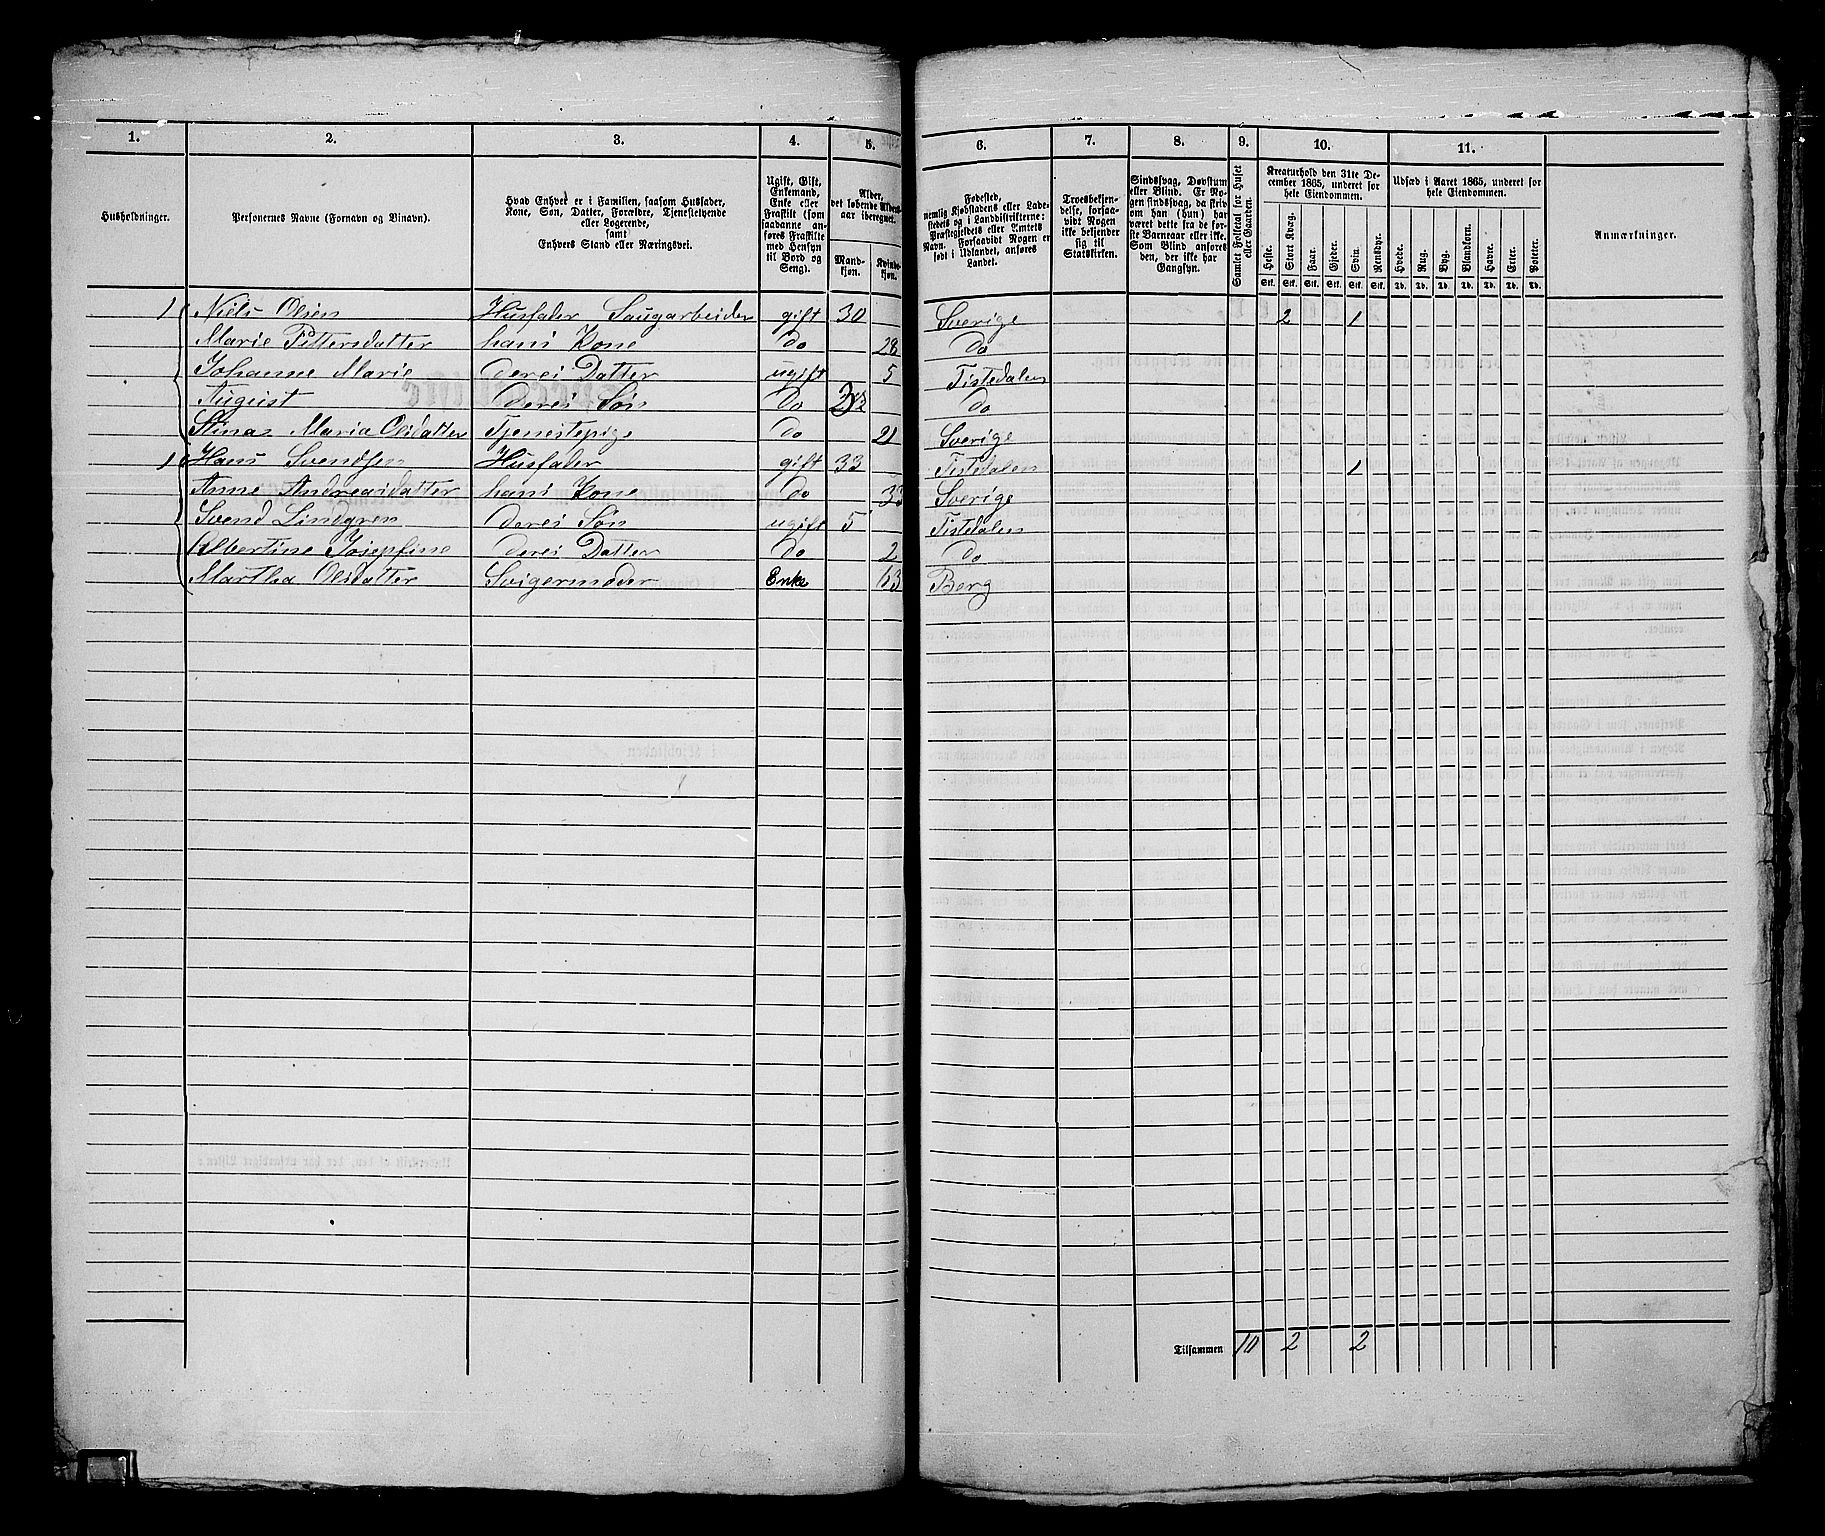 1. 2. 3. 4. 5. 6. 7. 8. 9. 10. 11.
Husholdninger.
Personernes Navne (Fornavn og Binavn).
Hvad Enhver er i Familien, saasom Husfader,
Kone, Søn, Datter, Forældre, Tjenestetyende
eller Logerende,
samt
Enhvers Stand eller Næringsvei.
Ugift, Gift,
Enkemand,
Enke eller
Fraskilt (som
saadanne an-
føres Fraskilte
med Hensyn
til Bord og
Seng).
Alder,
det løbende Alders-
aar iberegnet.
Mand-
kjøn.
Kvinde-
kjøn.
Fødested,
nemlig Kjøbstadens eller Lade-
stedets og i Landdistrikterne:
Præstegjeldets eller Amtets
Navn. Forsaavidt Nogen er
født i Udlandet, anføres
Landet.
Troesbekjen-
delse, forsaa-
vidt Nogen
ikke bekjender
sig til
Statskirken.
Sindssvag, Døvstum
eller Blind. Er No-
gen sindssvag, da skriv
om han (hun) har
været dette fra de før-
ste Barneaar eller ikke.
Som Blind anføres
den, der ikke har
Gangsyn.
Samlet Folketal for Huset
eller Gaarden.
Kreaturhold den 31te De-
cember 1865, underet for
hele Eiendommen.
Heste. Stort Kvæg. Faar. Gjeder. Svin. Rensdyr.
Stk. Stk. Stk. Stk. Stk. Stk.
Udsæd i Aaret 1865, underet for
hele Eiendommen.
Hvede. Rug. Byg. Blandkorn. Havre. Erter. Poteter.
Td. Td. Td. Td. Td. Td. Td.
Anmærkninger.
1 Niels Olsen Husfader Saugarbeider gift 30 Sverige 2 1
Marie Pettersdatter hans Kone do 28 do
Johanne Marie deres Datter ugift 5 Tistedalen
August deres Søn do do
Stina Maria Olsdatter Tjenestepige do 21 Sverige
1 Hans Svendsen Husfader gift 33 Tistedalen 1
Anne Andreasdatter hans Kone do 33 Sverige
Svend Lindgren deres Søn ugift 5 Tistedalen
Albertine Josephine deres Datter do 2 do
Martha Olsdatter Svigermoder Enke 63 Berg
Tilsammen 10 2 2